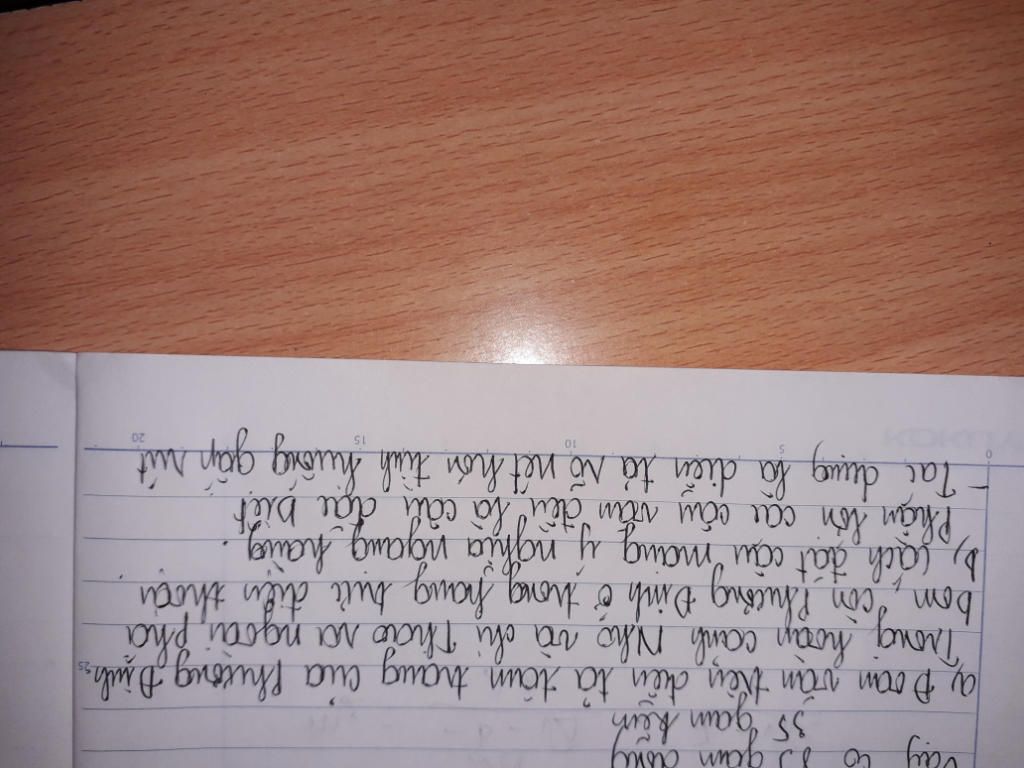 Vậy có 35 gam đồng
35 gam kẽm
a, Đoạn văn trên diễn tả tâm trạng của Phương Định
Trong hoàn cảnh Nho và chị Thao ra ngoài phá
bom, còn Phương Định ở trong hang trực điện thoại
b, Cách đặt câu mang ý nghĩa ngang hàng.
Phần lớn các câu văn đều là câu đặc biệt
- Tác dụng là diễn tả rõ nét hơn tình huống gấp rút
0 5 10 15 20
25